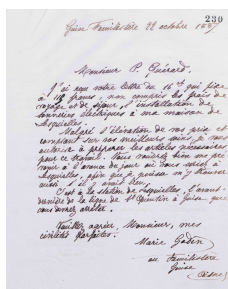 230
Guise Familistère 22 octobre 188
Monsieur P. Guérard,
J'ai reçu votre lettre du 16 et qui fixe
à 110 francs, non compris les frais de
voyage et de séjour, l'installation de
sonneries électriques à ma maison de
Lesquielles.
Malgré l'élévation de vos prix et
comptant sur vos meilleurs soins, je vous
autorise à préparer les articles nécessaires
pour ce travail. Vous voudrez bien me pré-
venir à l'avance du jour où vous serez à
Lesquielles, afin que je puisse m'y trouver
aussi s'il y avait lieu.
C'est à la station de Lesquielles, l'avant-
dernière de la ligne de St Quentin à Guise que
vous devrez arrêter.
Veuillez agréer, Monsieur, mes
civilités parfaites.
Marie Godin
au Familistère
Guise
(Aisne)